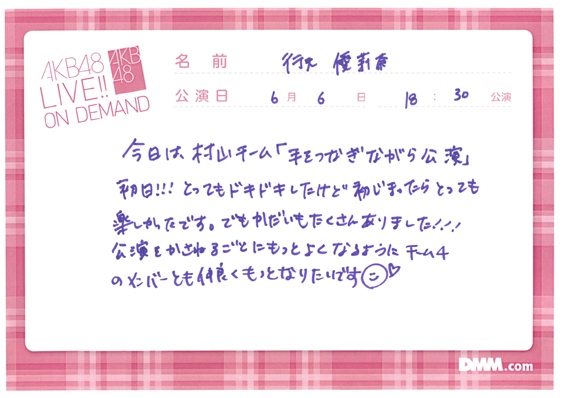 AKB48
LIVE!!
ON DEMAND
AKB
48
名前 行天 優莉奈
公演日 6月 6日 18:30 公演
今日は村山チーム「手をつなぎながら公演」
初日!!! とってもドキドキしたけど初じまったらとっても
楽しかったです。でもかだいもたくさんありました!!!
公演をかさねるごとにもっとよくなるようにチーム4
のメンバーとも仲良くもっとなりたいです
DMM.com